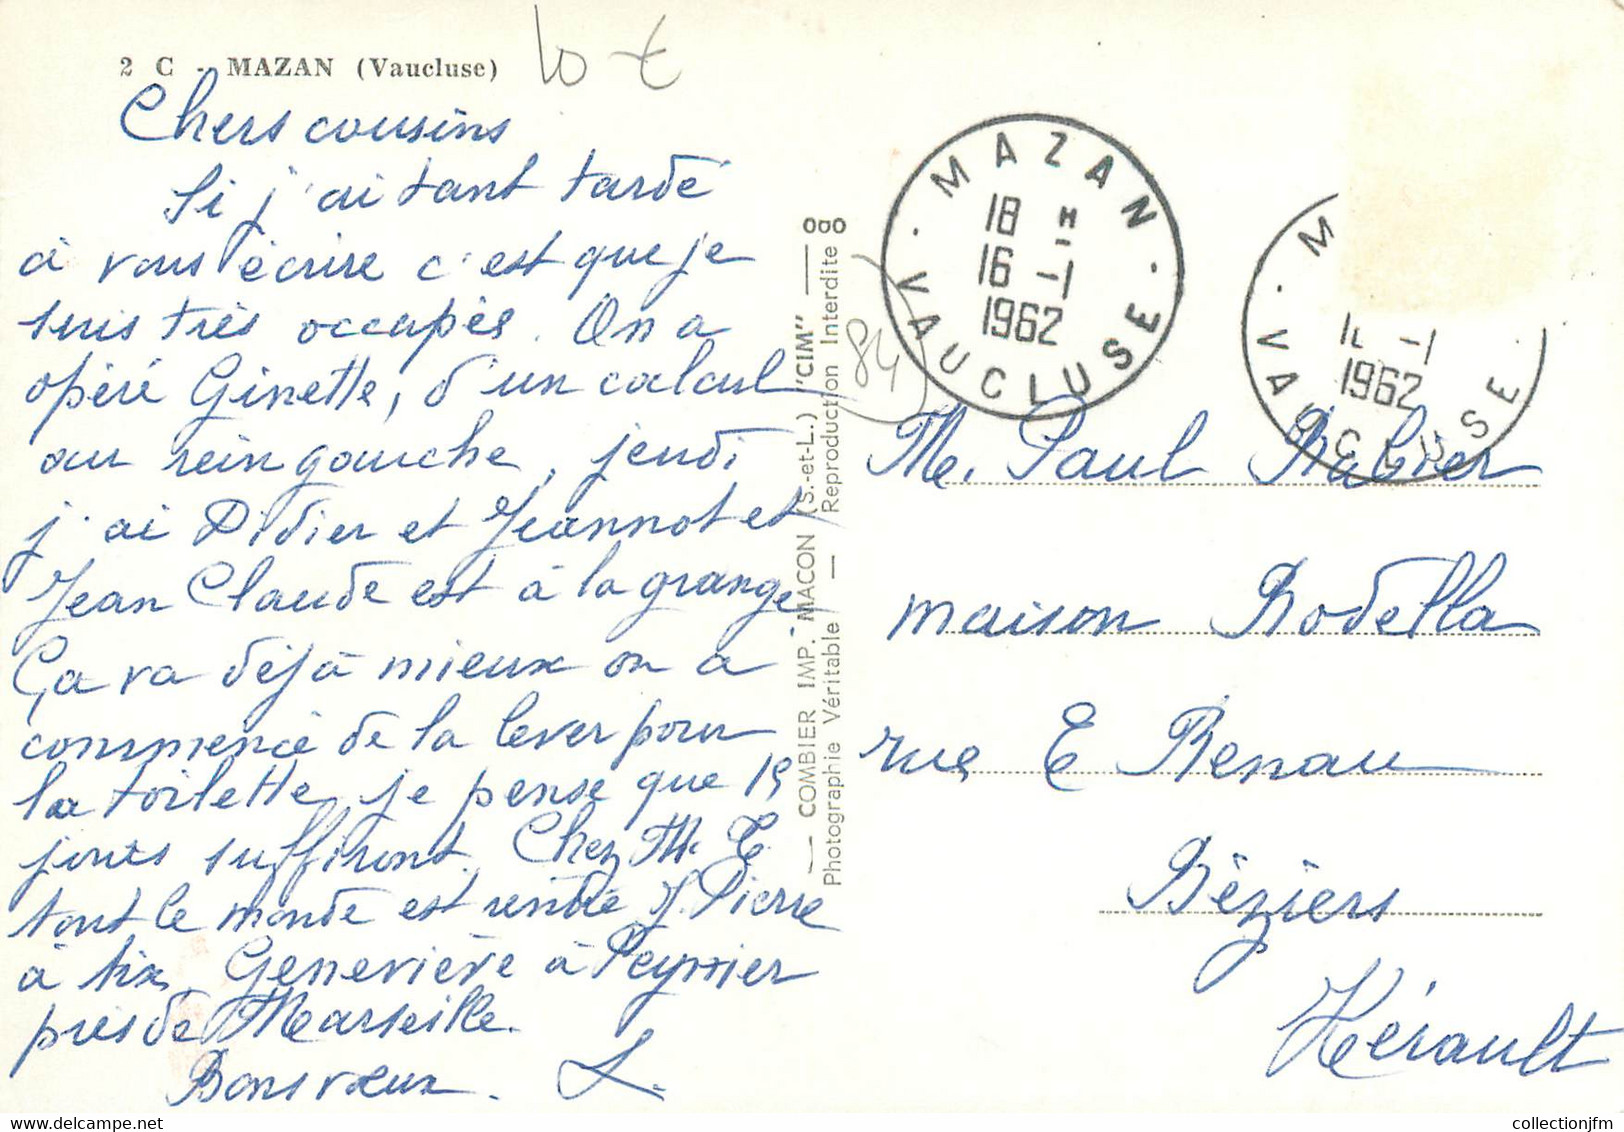 2 C - MAZAN (Vaucluse)
10 €
Chers cousins
Si j'ai tant tardé
à vous écrire c'est que je
suis très occupés. On a
opéré Ginette, d'un calcul
au rein gauche, jeudi
j'ai Didier et Jeannot et
Jean Claude est à la grange
Ça va déjà mieux on a
commencé de la lever pour
la toilette, je pense que 15
jours suffiront. Chez M. E.
tout le monde est rentré J. Pierre
à Aix, Geneviève à Peynier
près de Marseille.
Bons vœux. L.
COMBIER IMP. MACON (S.-et-L.) "CIM"
Photographie Véritable — Reproduction Interdite
84
MAZAN
18 H
16 -1
1962
VAUCLUSE
M
-1
1962
VAUCLUSE
M. Paul
maison Rodella
rue E Renau
Béziers
Hérault
collectionjfm